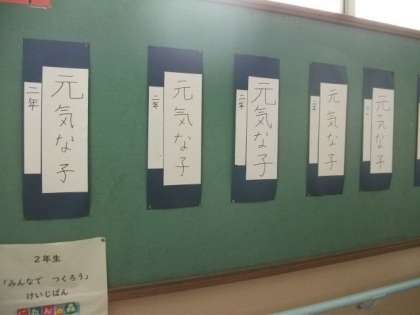 元気な子
二年
元気な子
二年
元気な子
二年
元気な子
二年
元気な子
2年生
「みんなで つくろう」
けいじばん